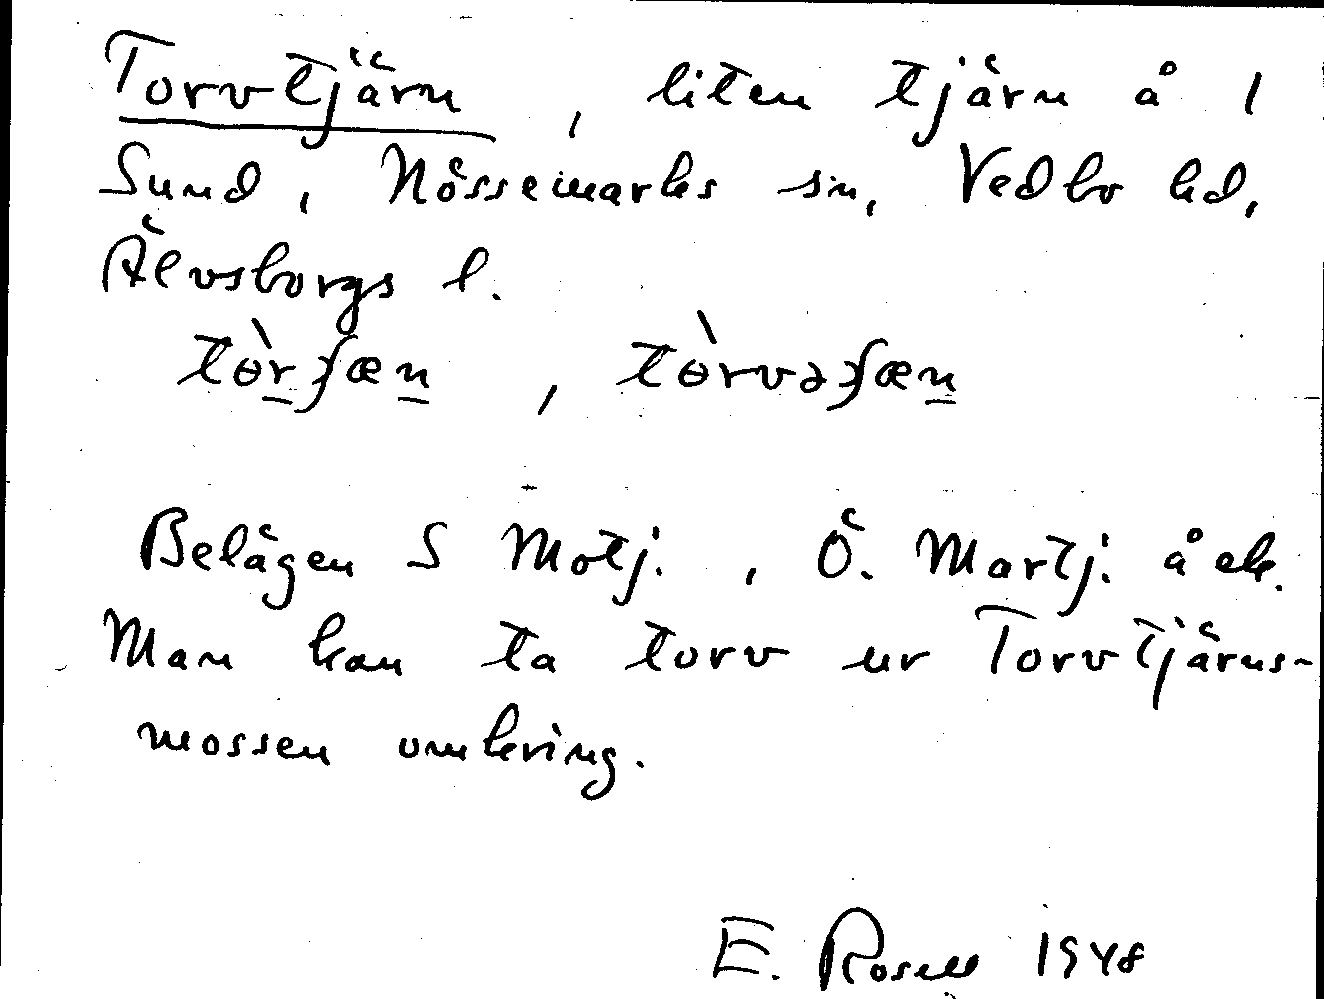 Torvtjärn, liten tjärn å 1
Sund, Nössemarks sn, Vedbo hd,
Älvsborgs l.
tɵ̀r̲ʃæn̲, tɵ̀rvəʃæn̲
Belägen S Motj., Ö. Martj. å ek.
Man kan ta torv ur Torvtjärns-
mossen omkring.
E. Rosell 1948